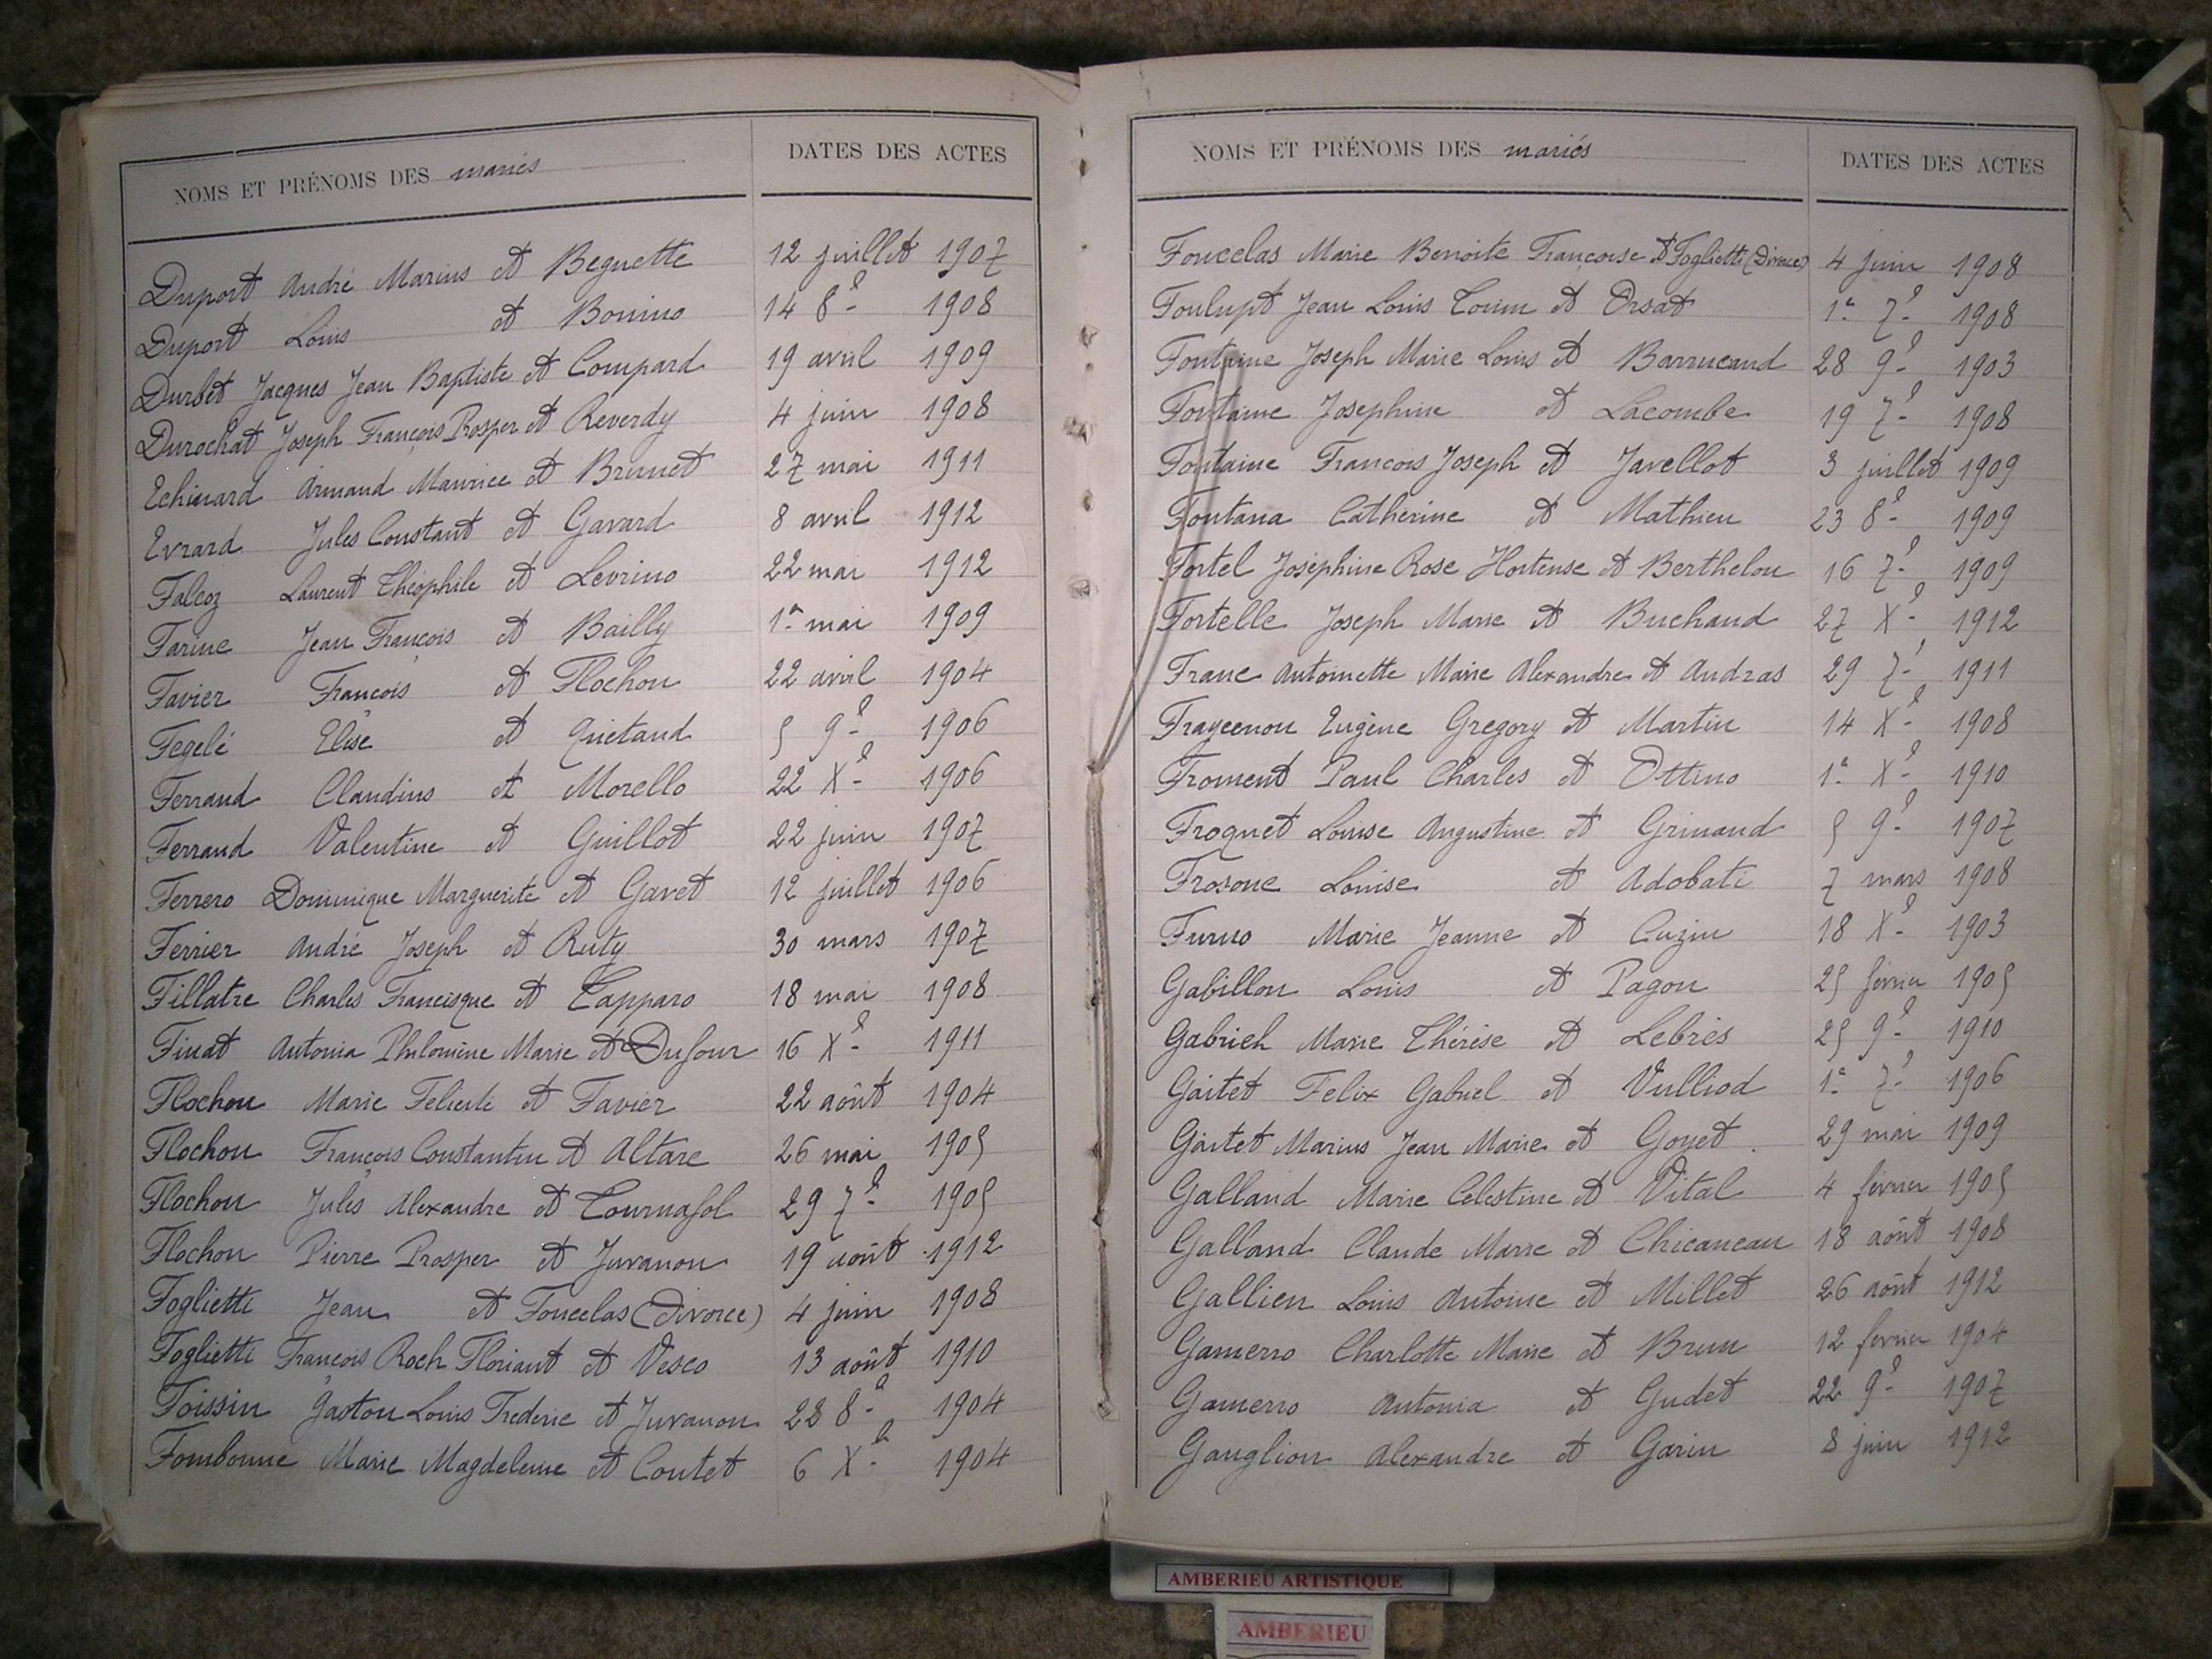 NOMS ET PRÉNOMS DES mariés DATES DES ACTES
Duport André Marius et Beguette 12 juillet 1907
Duport Louis et Bonino 14 8e 1908
Durbet Jacques Jean Baptiste et Compard 19 avril 1909
Durochat Joseph François Prosper et Reverdy 4 juin 1908
Echinard Armand Maurice et Brunet 27 mai 1911
Evrard Jules Constant et Gavard 8 avril 1912
Falcoz Laurent Théophile et Levrino 22 mai 1912
Farine Jean François et Bailly 1er mai 1909
Favier François et Flochon 22 avril 1904
Fegelé Elise et Quetand 5 9e 1906
Ferrand Claudius et Morello 22 Xe 1906
Ferrand Valentine et Guillot 22 juin 1907
Ferrero Dominique Marguerite et Gavet 12 juillet 1906
Ferrier André Joseph et Ruty 30 mars 1907
Fillatre Charles Francisque et Tapparo 18 mai 1908
Finat Antonia Philomène Marie et Dufour 16 Xe 1911
Flochon Marie Felicité et Favier 22 août 1904
Flochon François Constantin et Altare 26 mai 1905
Flochon Jules Alexandre et Tournafol 29 7e 1905
Flochon Pierre Prosper et Juvanon 19 août 1912
Foglietti Jean et Foucelas (Divorce) 4 juin 1908
Foglietti François Roch Floriant et Vesco 13 août 1910
Foissin Gaston Louis Frederic et Juvanon 28 8e 1904
Fombonne Marie Magdeleine et Coutet 6 Xe 1904
NOMS ET PRÉNOMS DES mariés DATES DES ACTES
Foucelas Marie Benoite Françoise et Foglietti (Divorce) 4 juin 1908
Foulupt Jean Louis Toum et Orsat 1er 7e 1908
Fontaine Joseph Marie Louis et Barrucand 28 9e 1903
Fontaine Josephine et Lacombe 19 7e 1908
Fontaine Francois Joseph et Javellot 3 juillet 1909
Fontana Catherine et Mathieu 23 8e 1909
Fortel Joséphine Rose Hortense et Berthelon 16 7e 1909
Fortelle Joseph Marie et Buchaud 27 Xe 1912
Franc Antoinette Marie Alexandre et Andras 29 7e 1911
Fraycenon Eugène Gregory et Martin 14 Xe 1908
Froment Paul Charles et Ottino 1er Xe 1910
Froquet Louise Augustine et Grinand 5 9e 1907
Frosone Louise et Adobati 7 mars 1908
Furno Marie Jeanne et Cuzin 18 Xe 1903
Gabillon Louis et Pagon 25 février 1905
Gabrieh Marie Thérèse et Lebrès 25 9e 1910
Gaitet Felix Gabriel et Vulliod 1er 7e 1906
Gaitet Marius Jean Marie et Goyet 29 mai 1909
Galland Marie Célestine et Vital 4 février 1905
Galland Claude Marie et Chicaneau 18 août 1908
Gallien Louis Antoine et Millet 26 août 1912
Gamerro Charlotte Marie et Brun 12 fevrier 1904
Gamerro Antonia et Gudet 22 9e 1907
Ganglion Alexandre et Garin 8 juin 1912
AMBERIEU ARTISTIQUE
AMBERIEU